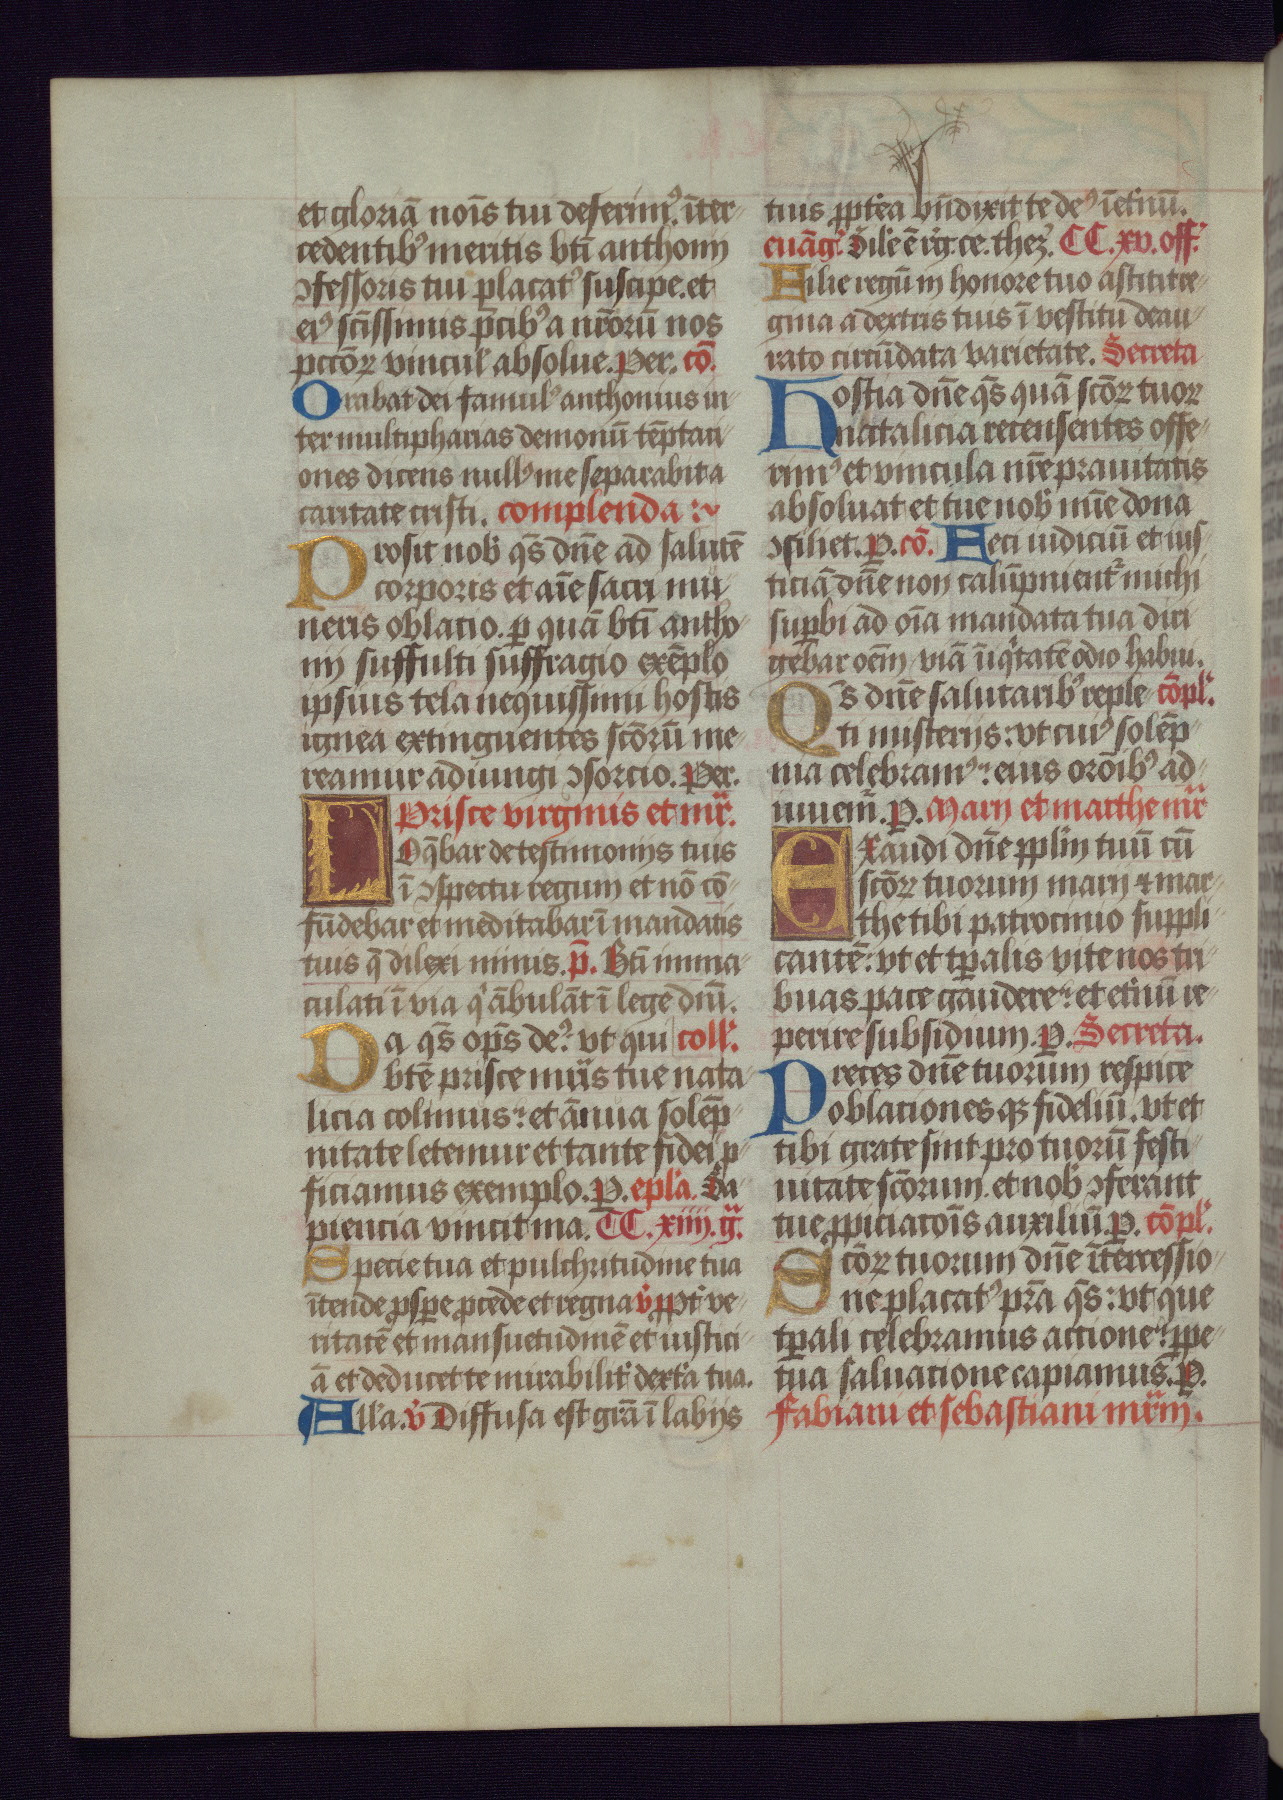 et gloriā noīs tui deferimꝰ. īter-
cedentibꝰ meritis bt̄i anthonij
ↄfessoris tui placatꝰ suscipe. et
eiꝰ sc̄issimus p̄cibꝰ a nr̄orū nos
pctōꝝ vincul' absolue. Per. cō.
Orabat dei famulꝰ anthonius in
ter multipharias demonū tēptati
ones dicens nullꝰ me separabit a
caritate cristi. complenda :~
Prosit nob' qs̄ dn̄e ad salutē
corporis et aīe sacri mu-
neris oblatio. ꝑ quā bt̄i antho-
nij suffulti suffragio exēplo
ipsius tela nequissimi hostis
ignea extinguentes scōrū me-
reamur adiungi ↄsorcio. Per.
Prisce virginis et mr̄.
Loq̄bar de testimonijs tuis
ī ↄspectu regum et nō cō-
fūdebar et meditabar ī mandatis
tuis q̄ dilexi nimis. p̄. Bt̄i imma-
culati ī via q' ābulāt ī lege dn̄i.
Da qs̄ op̄s deꝰ: vt qui coll'.
bt̄e prisce mr̄is tue nata-
licia colimus: et ānua solēp-
nitate letemur et tante fidei ꝓ-
ficiamus exemplo. P. epl'a. Sa-
piencia vincit ma. CC. xiiij. g̈.
Specie tua et pulchritudine tua
ītende ꝓspe ꝓcede et regna v̇ ꝓpt' ve-
ritatē et mansuetudinē et iustici-
ā et deducet te mirabilit' dext'a tua.
All'a. v̇ Diffusa est grā ī labijs
tuis ꝓpt'ea bn̄dixit te deꝰ ī et'nū.
euāg'. Sil'e ē rḡ. ce. thez'. CC. xv. off.'
Filie regū in honore tuo astitit re-
gina a dextris tuis ī vestitu deau-
rato circūdata varietate. Secreta
Hostia dn̄e qs̄ quā scōꝝ tuoꝝ
natalicia recensentes offe-
rimꝰ et vincula nr̄e prauitatis
absoluat et tue nob' mīe dona
ↄsiliet. P. cō. Feci iudiciū et ius-
ticiā dn̄e non calūpnient' michi
sup̄bi ad oīa mandata tua diri
gebar oēm viā īiq'tatē odio habui.
Qs̄ dn̄e salutaribꝰ reple cōpl'.
ti misterijs: vt cuiꝰ solēp-
nia celebramꝰ: eius orōibꝰ ad-
iuuem̄. P. Marij et marthe mr̄
Exaudi dn̄e ppl'm tuū cū
scōꝝ tuorum marij ⁊ mar-
the tibi patrocinio suppli-
cantē: vt et tꝑalis vite nos tri-
buas pace gaudere: et et'nū re-
perire subsidium. P. Secreta.
Preces dn̄e tuorum respice
oblationes qꝫ fideliū. vt et
tibi grate sint pro tuorū festi-
uitate scōrum. et nob' ↄferant
tue ꝓpiciatoīs auxiliū. P. cōpl'.
Scōꝝ tuorum dn̄e ītercessio-
ne placatꝰ pr̄a qs̄: vt que
tꝑali celebramus actione: ꝑpe-
tua saluatione capiamus. P.
Fabiani et sebastiani mr̄m.